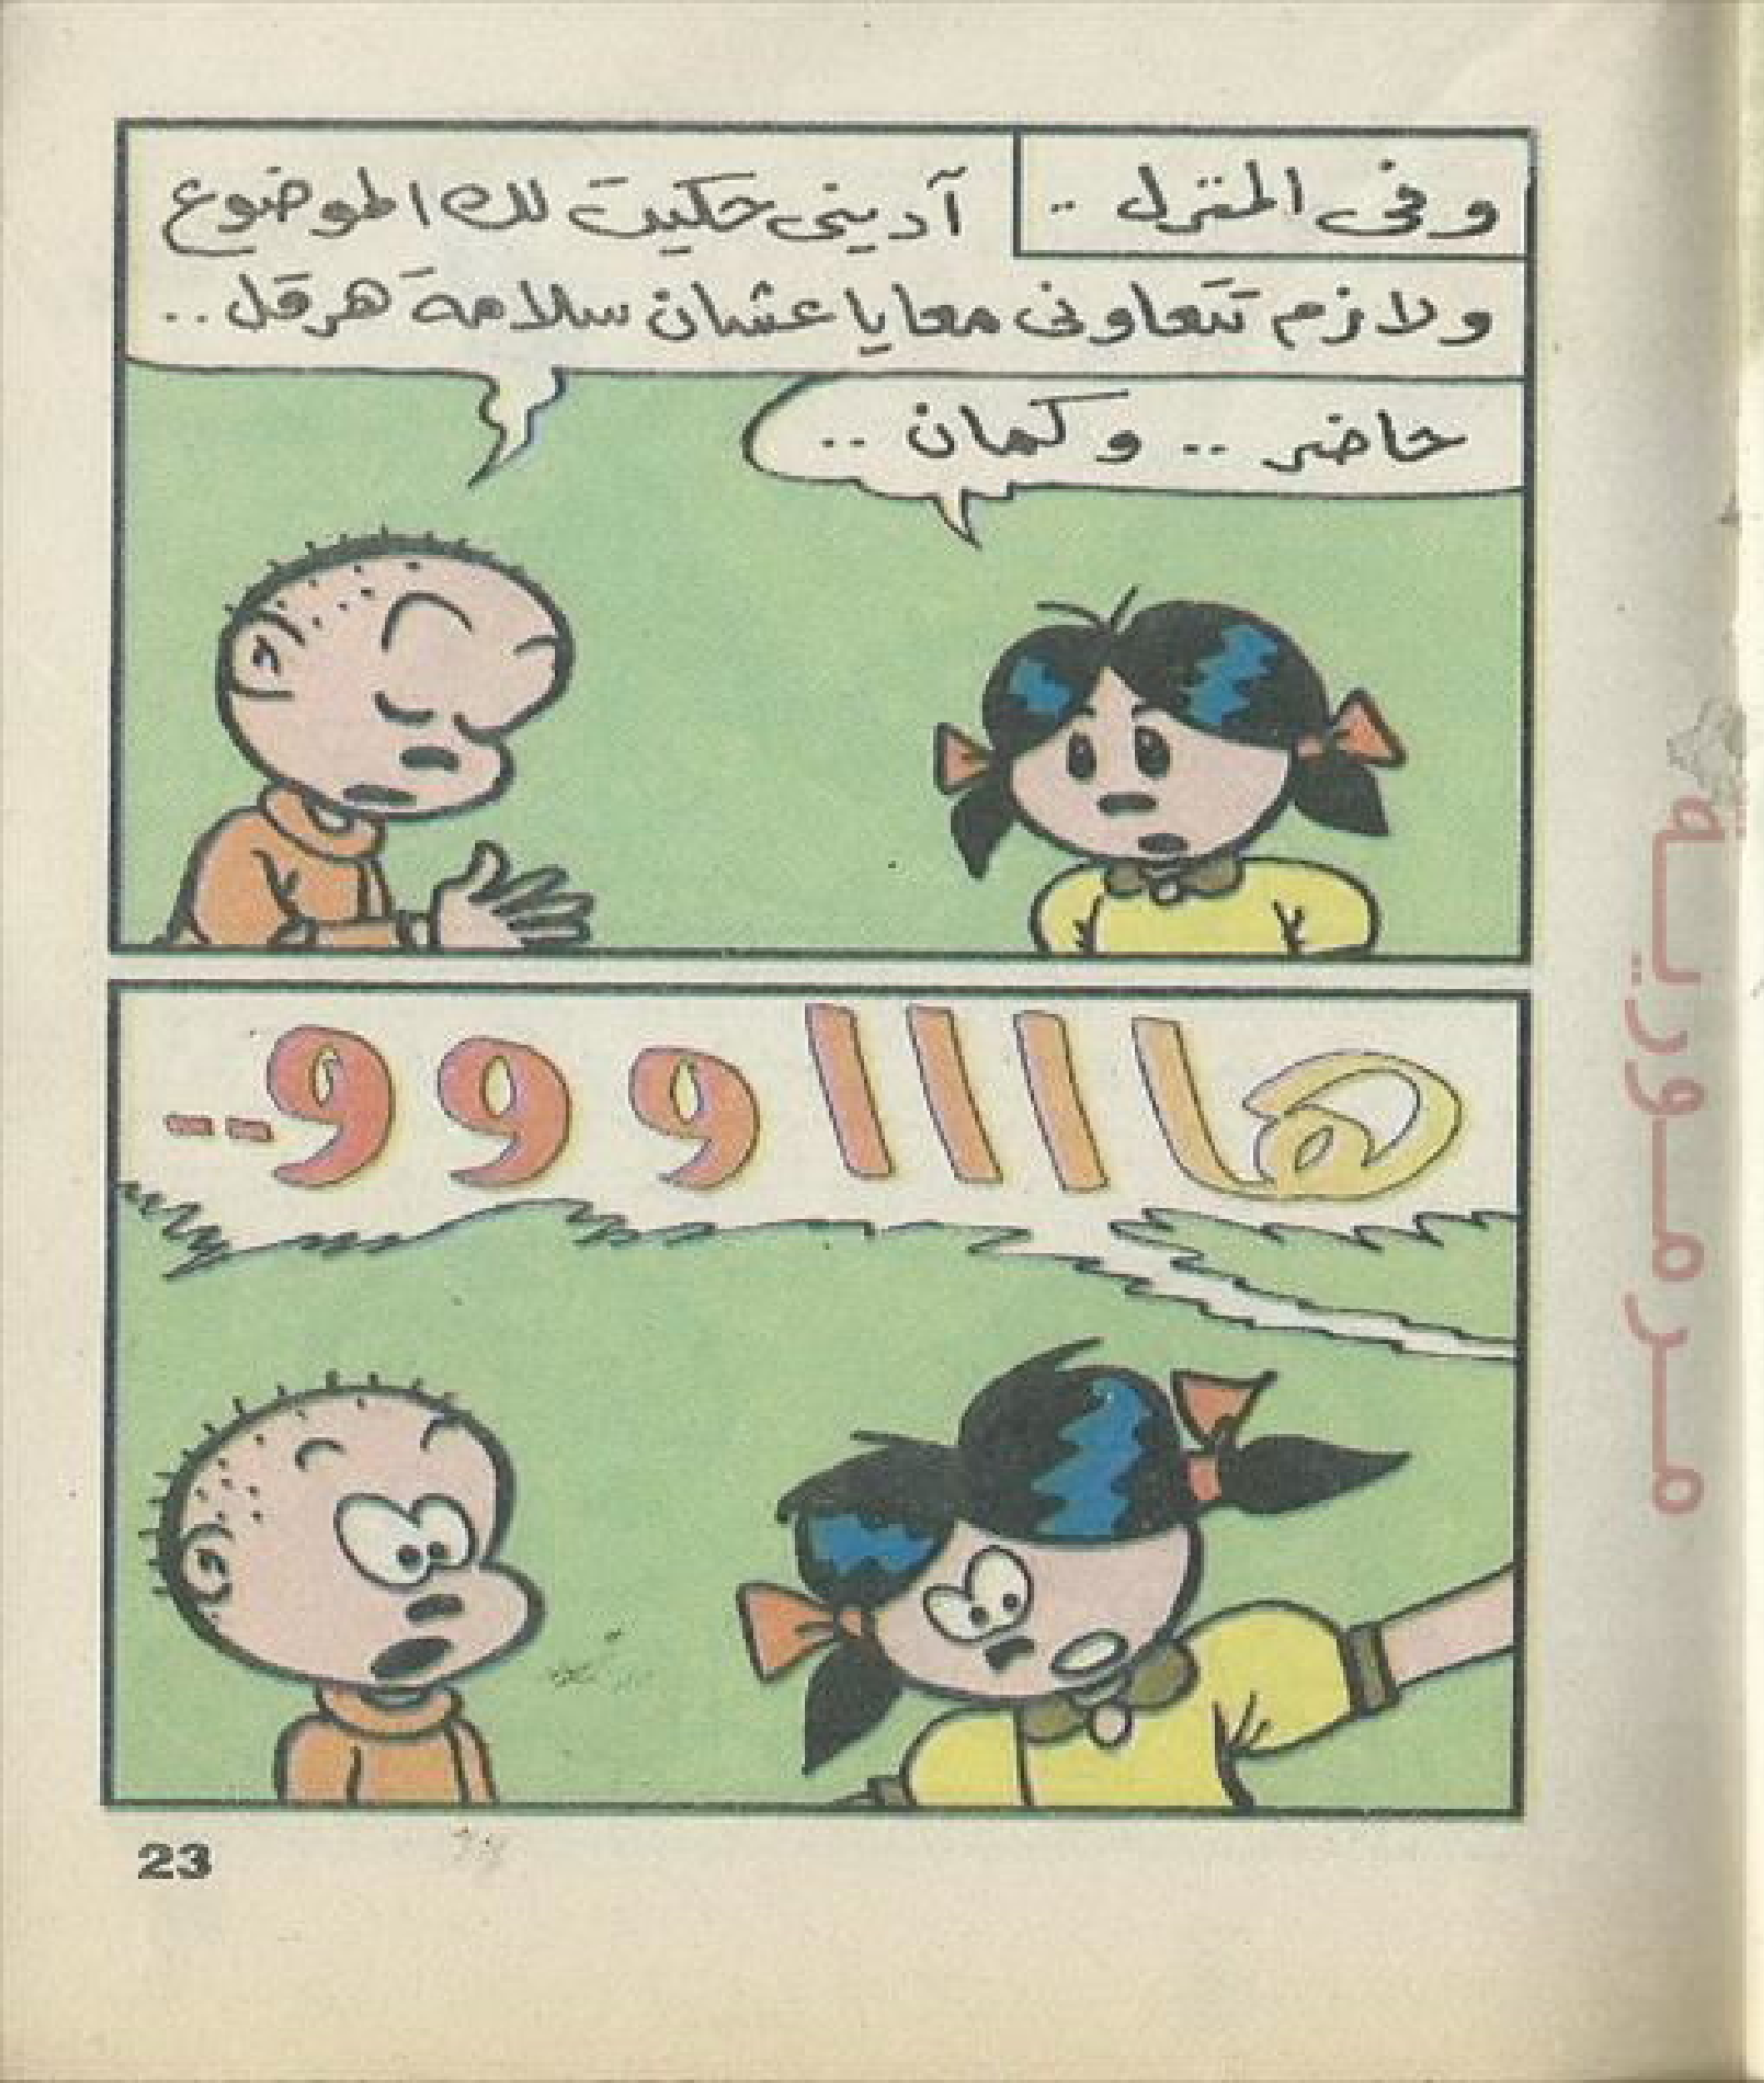 وفى المنزل ..
آدينى حكيت لك الموضوع
ولازم تتعاونى معايا عشان سلامة هرقل ..
حاضر .. وكمان ..
هاااااووو --
23
مرمورية